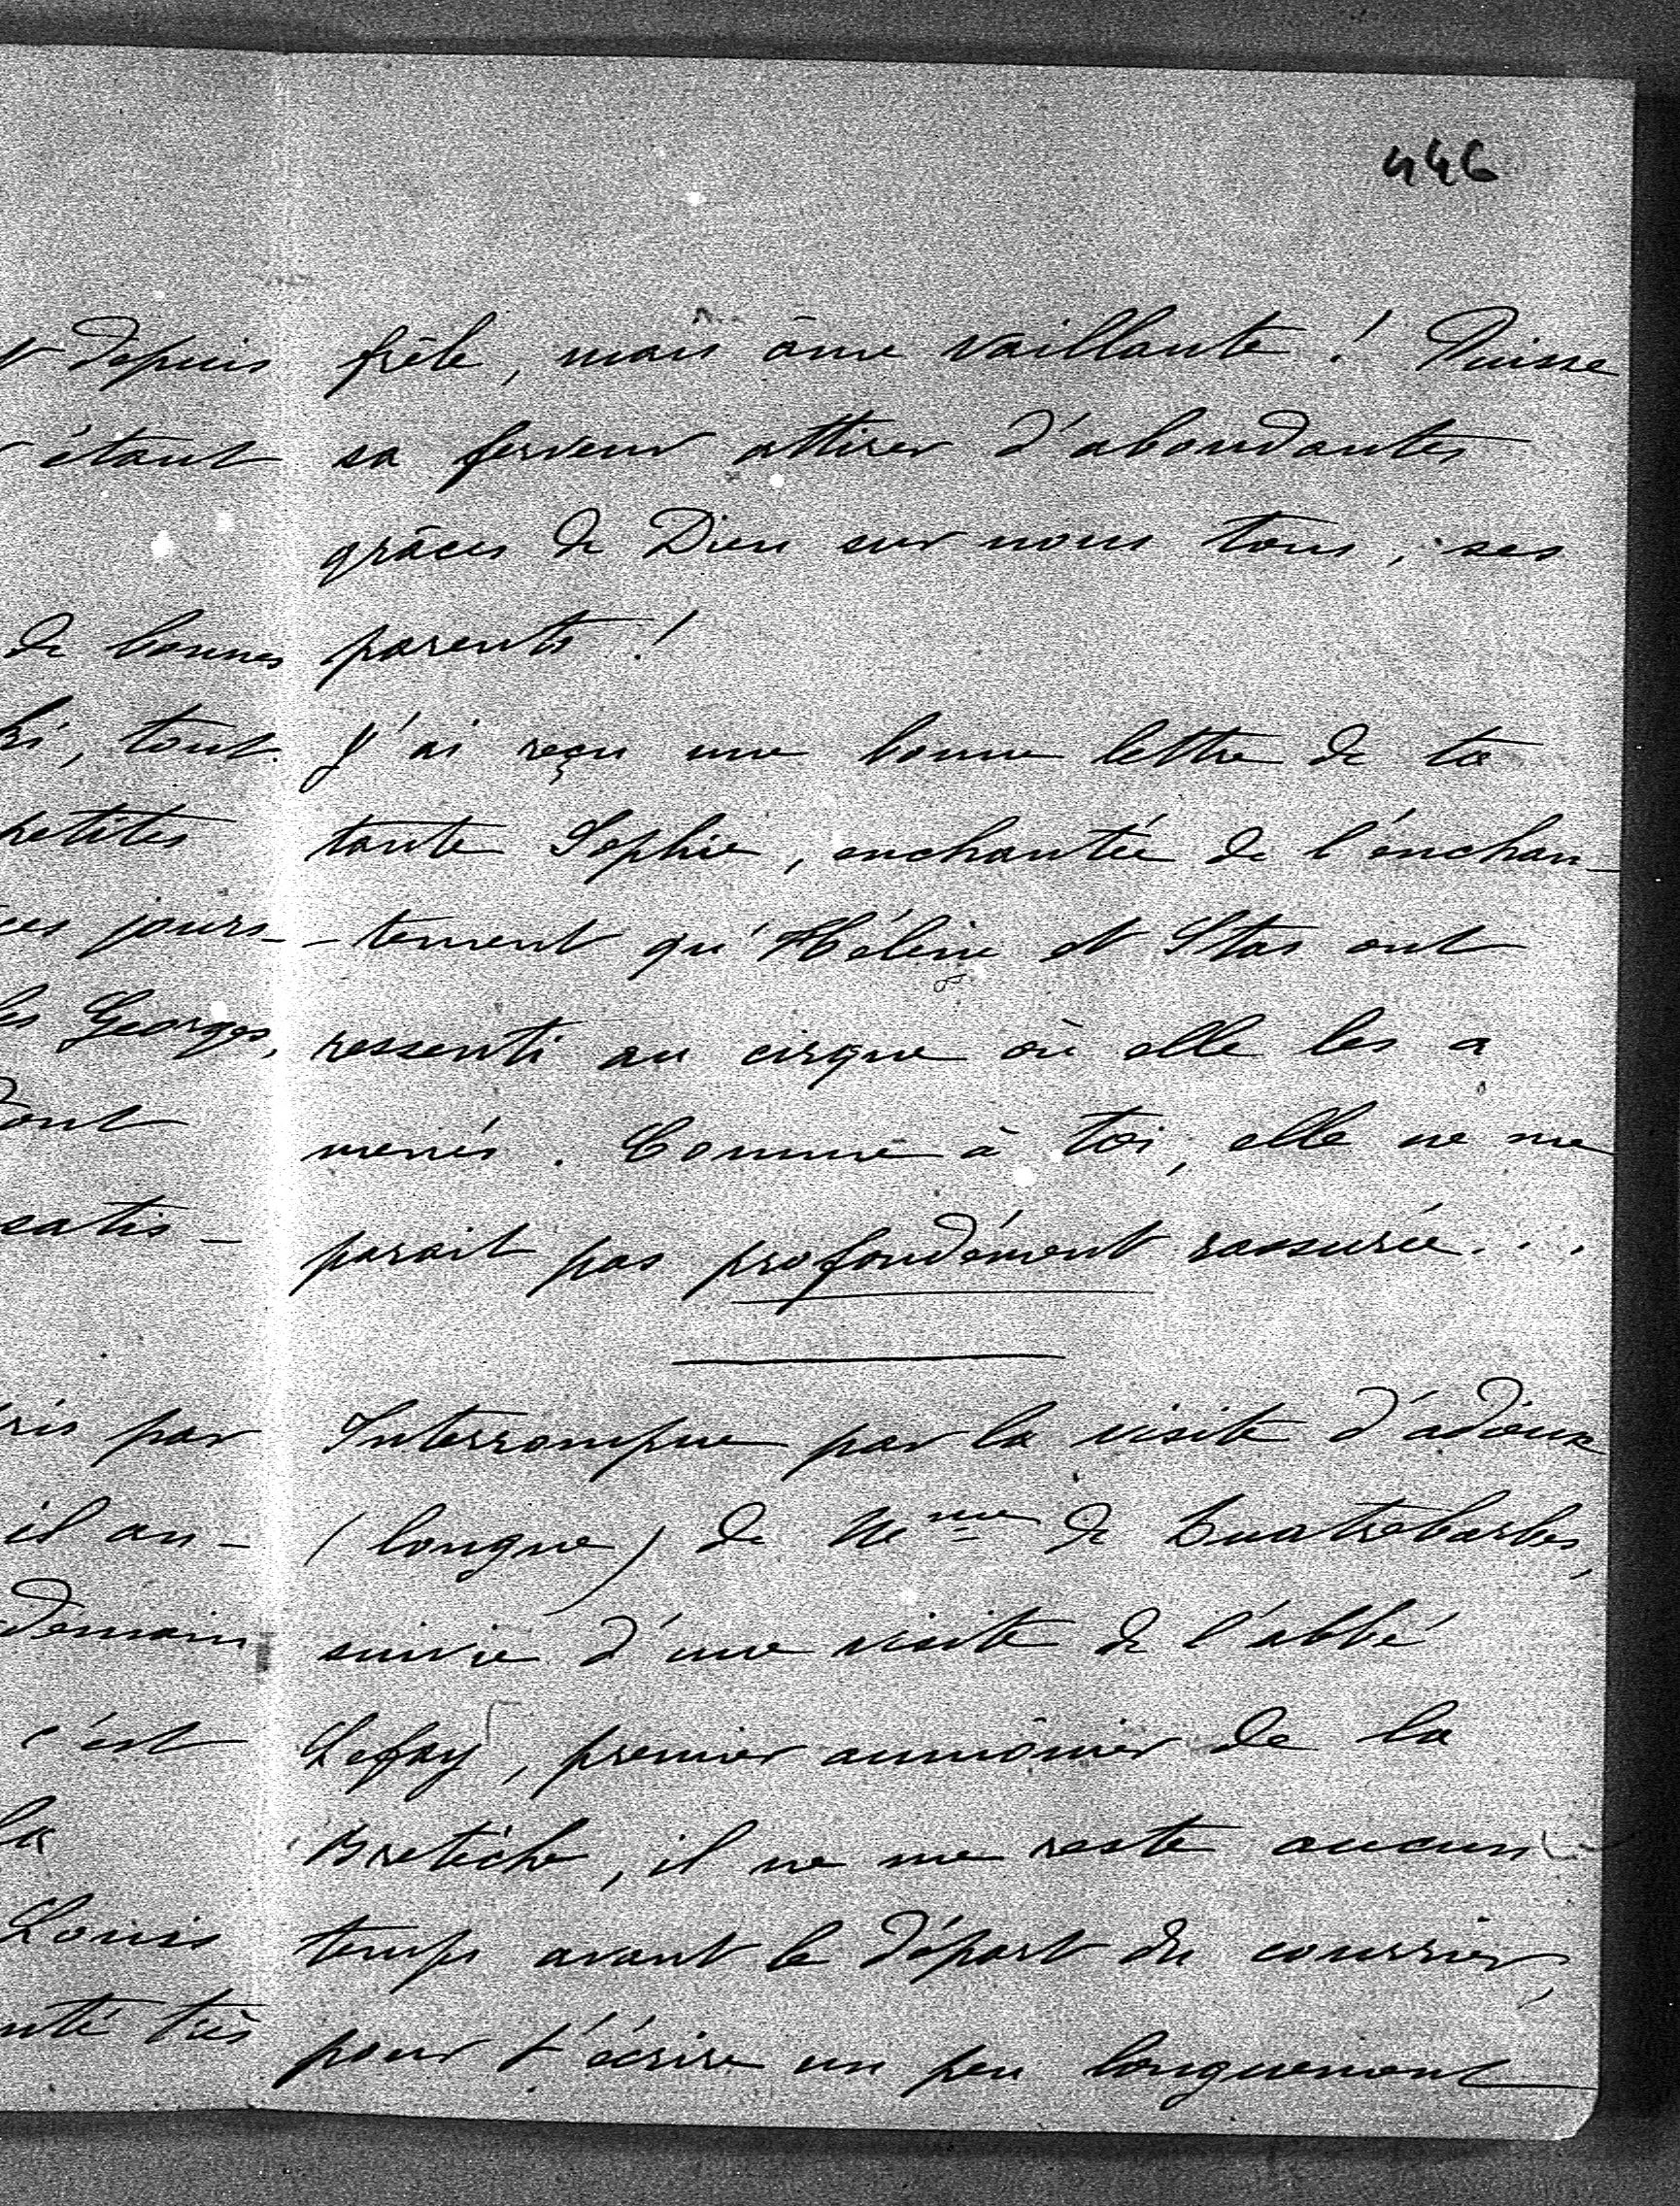 446
depuis
étant
de bonnes
tout
petites
ces jours-
les Georges,
dont
satis-
par
il an-
demain
c'est
la
Louis
très
frêle, mais âme vaillante ! Puisse
sa ferveur attirer d'abondantes
grâces de Dieu sur nous tous, ses
parents !
J'ai reçu une bonne lettre de ta
tante Sophie, enchantée de l'enchan-
-tement qu'Hélène et Stas ont
ressenti au cirque où elle les a
menés. Comme à toi, elle ne me
parait pas profondément rassurée...
Interrompue par la visite d'adieux
(longue) de Mme de Quatrebarbes,
suivie d'une visite de l'abbé
Lefay, premier aumônier de la
Bretèche, il ne me reste aucun
temps avant le départ du courrier,
pour t'écrire un peu longuement